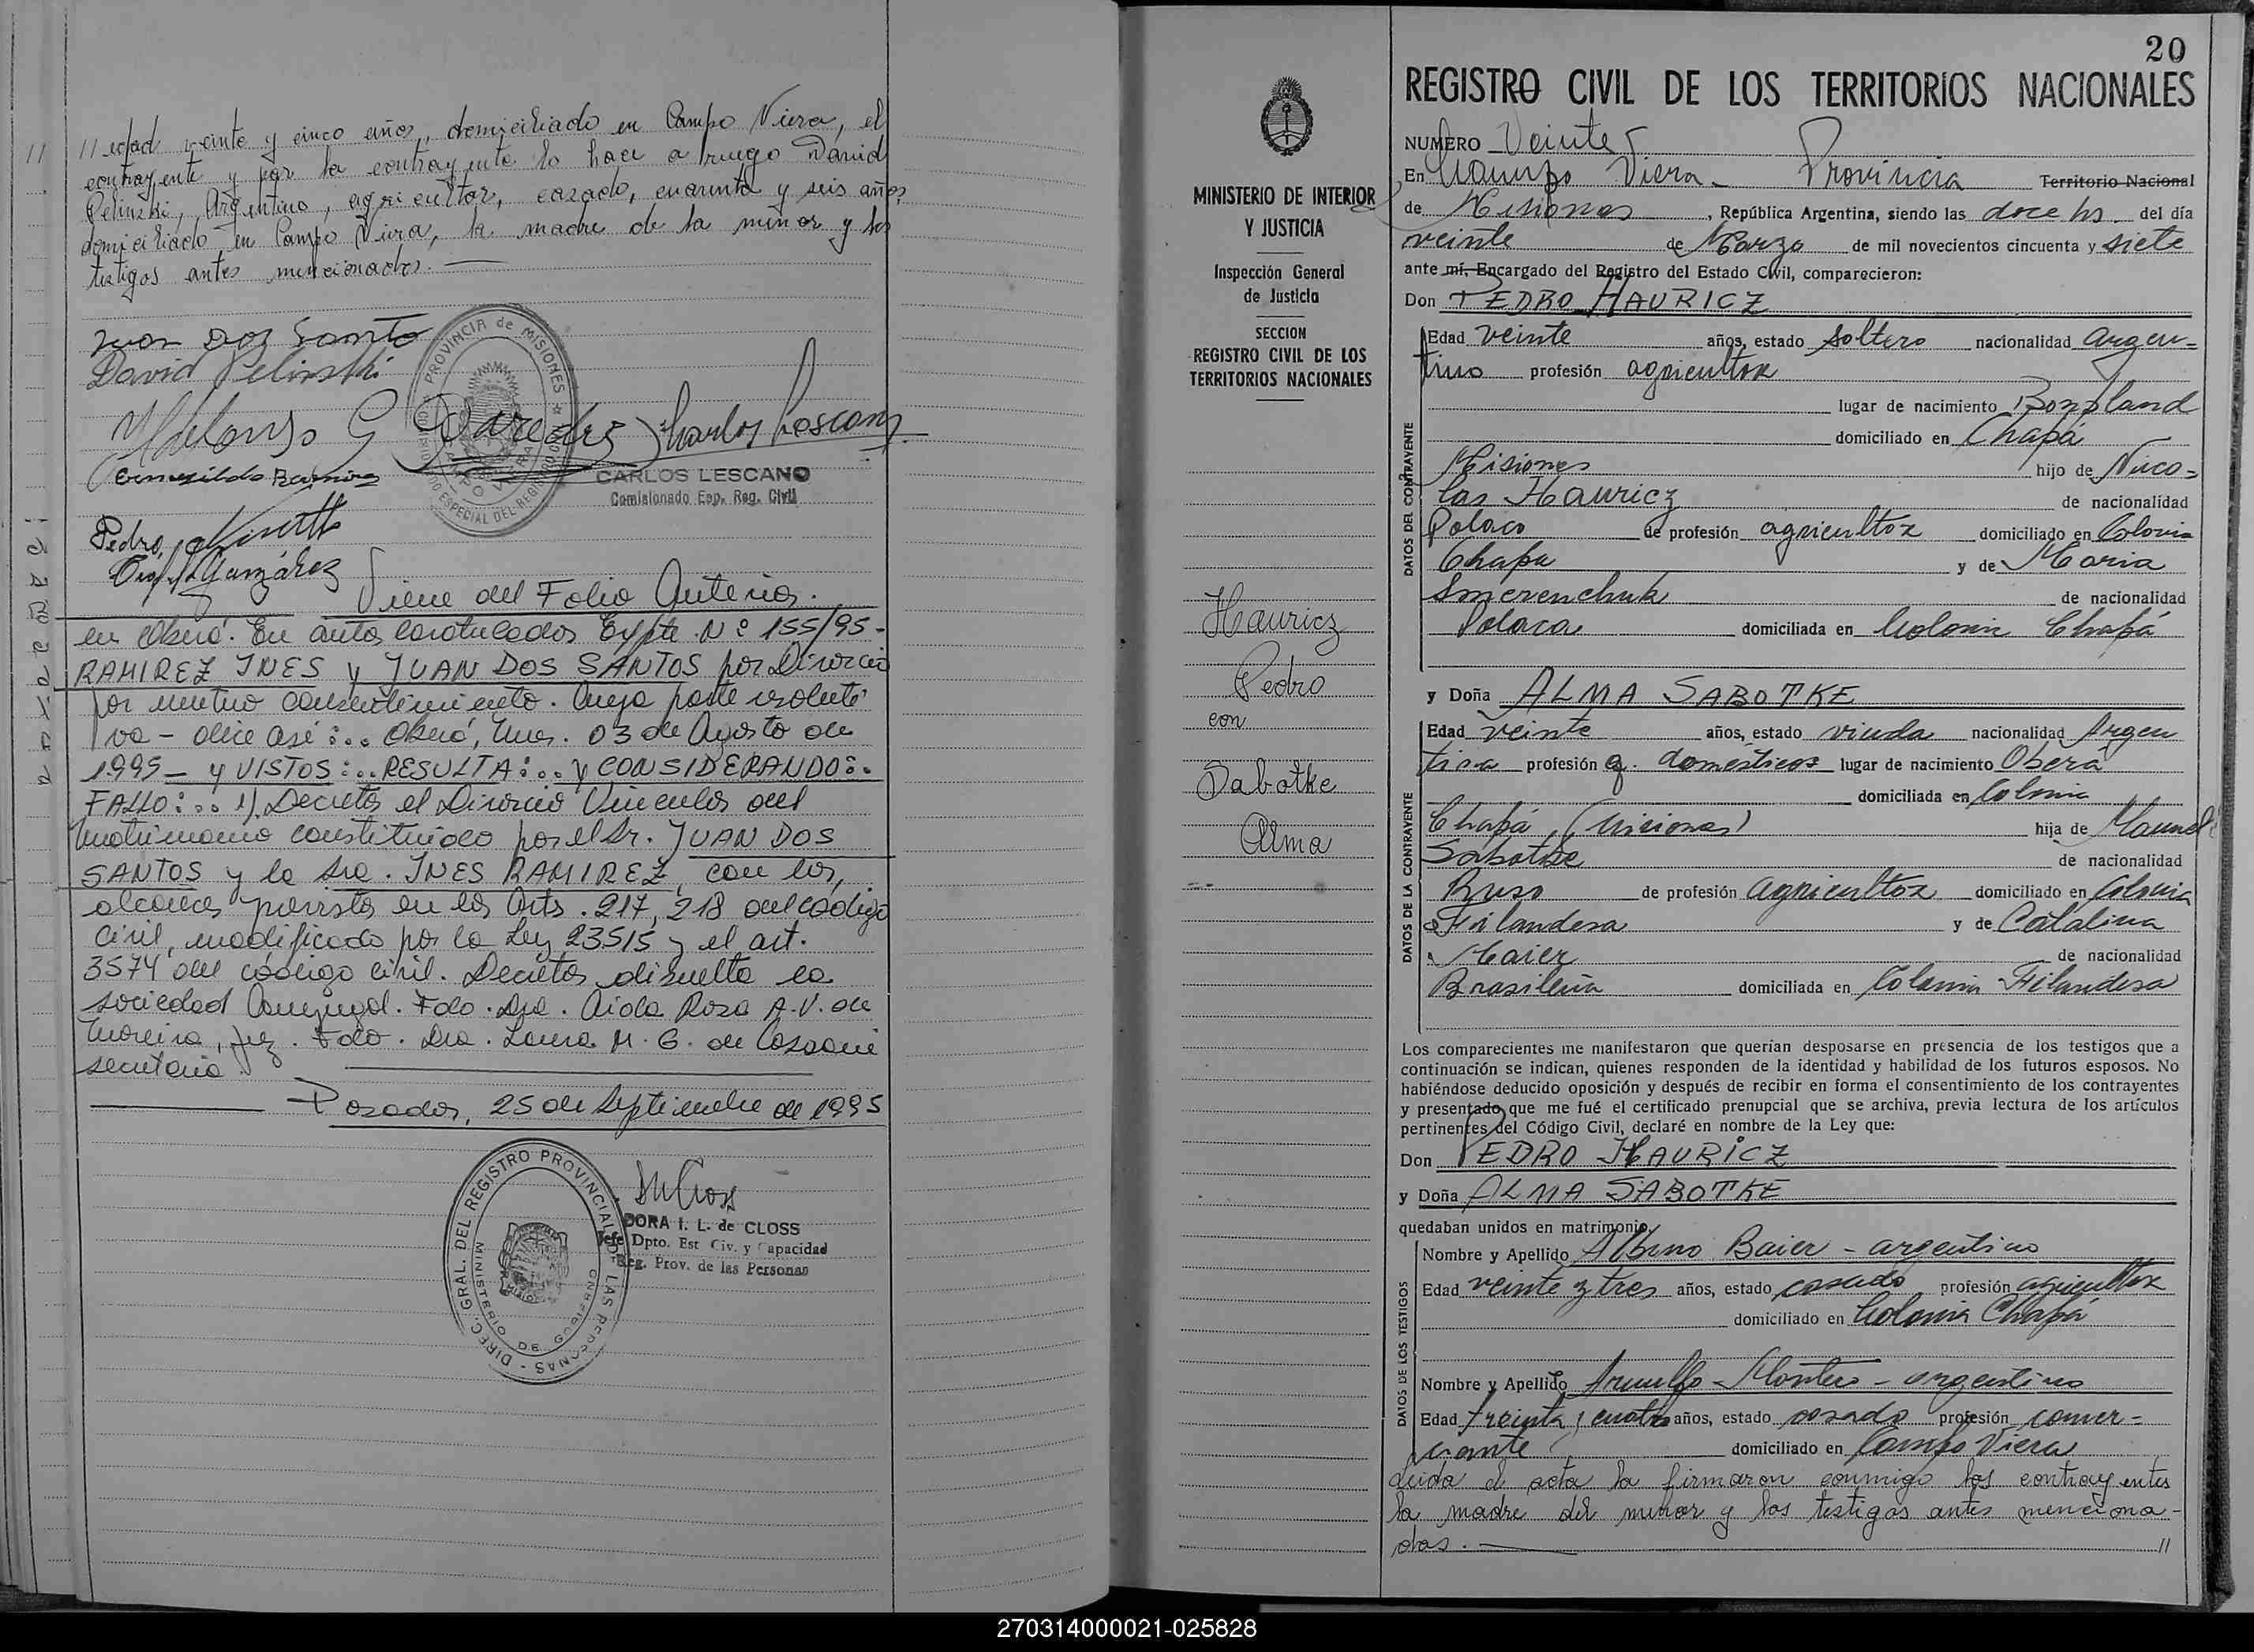 // edad veinte y cinco años, domiciliado en Campo Viera, el
contrayente y por la contrayente lo hace a ruego David
Pelinski, Argentino, agricultor, casado, cuarenta y seis años,
domiciliado en Campo Viera, la madre de la menor y los
testigos antes mencionados.
Juan Dos Santo
David Pelinski
PROVINCIA de MISIONES
CARLOS LESCANO
Comisionado Esp. Reg. Civil
Pedro
Viene del Folio Anterior.
en Oberá. En autos caratulados Expte. Nº 155/95-
RAMIREZ INES y JUAN DOS SANTOS por Divorcio
por mutuo consentimiento. Cuya parte resoluti-
va - dice así:.. Oberá, Mnes. 03 de Agosto de
1995 - y VISTOS:.. RESULTA:.. y CONSIDERANDO:.
FALLO:.. 1) Decretar el Divorcio Vincular del
matrimonio constituido por el Sr. JUAN DOS
SANTOS y la Sra. INES RAMIREZ, con los
alcances previstos en los Arts. 217, 218 del código
civil, modificado por la Ley 23515 y el art.
3574 del código civil. Decretar disuelta la
sociedad Conyugal. Fdo. Dra. Aida Rosa A.V. de
Moreira, juez. Fdo. Dra. Laura M. G. de
secretaria.
Posadas, 25 de Septiembre de 1995
DIREC. GRAL. DEL REGISTRO PROVINCIAL DE LAS PERSONAS
MINISTERIO DE GOBIERNO
DORA I. L. de CLOSS
Jefe Dpto. Est Civ. y Capacidad
Reg. Prov. de las Personas
MINISTERIO DE INTERIOR
Y JUSTICIA
Inspección General
de Justicia
SECCION
REGISTRO CIVIL DE LOS
TERRITORIOS NACIONALES
Hauricz
Pedro
con
Sabotke
Alma
20
REGISTRO CIVIL DE LOS TERRITORIOS NACIONALES
NUMERO Veinte
En Campo Viera - Provincia Territorio Nacional
de Misiones, República Argentina, siendo las doce hs. del día
veinte de Marzo de mil novecientos cincuenta y siete
ante mí, Encargado del Registro del Estado Civil, comparecieron:
Don PEDRO HAURICZ
DATOS DEL CONTRAYENTE
Edad veinte años, estado soltero nacionalidad argen-
tino profesión agricultor
lugar de nacimiento Bonpland
domiciliado en Chapá
Misiones hijo de Nico-
las Hauricz de nacionalidad
Polaco de profesión agricultor domiciliado en Colonia
Chapa y de Maria
Smerenchuk de nacionalidad
Polaca domiciliada en Colonia Chapá
y Doña ALMA SABOTKE
DATOS DE LA CONTRAYENTE
Edad veinte años, estado viuda nacionalidad Argen
tina profesión q. domésticos lugar de nacimiento Obera
domiciliada en Colonia
Chapá, (Misiones) hija de Manuel
Sabotke de nacionalidad
Ruso de profesión agricultor domiciliado en Colonia
Filandesa y de Catalina
Maier de nacionalidad
Brasileña domiciliada en Colonia Filandesa
Los comparecientes me manifestaron que querían desposarse en presencia de los testigos que a
continuación se indican, quienes responden de la identidad y habilidad de los futuros esposos. No
habiéndose deducido oposición y después de recibir en forma el consentimiento de los contrayentes
y presentado que me fué el certificado prenupcial que se archiva, previa lectura de los artículos
pertinentes del Código Civil, declaré en nombre de la Ley que:
Don PEDRO HAURICZ
y Doña ALMA SABOTKE
quedaban unidos en matrimonio
DATOS DE LOS TESTIGOS
Nombre y Apellido Albino Baier - argentino
Edad veinte y tres años, estado casado profesión agricultor
domiciliado en Colonia Chapá
Nombre y Apellido Arnulfo Montero - argentino
Edad treinta y cuatro años, estado casado profesión comer-
ciante domiciliado en Campo Viera
Leida el acta la firmaron conmigo los contrayentes
la madre del menor y los testigos antes menciona-
dos. //
270314000021-025828